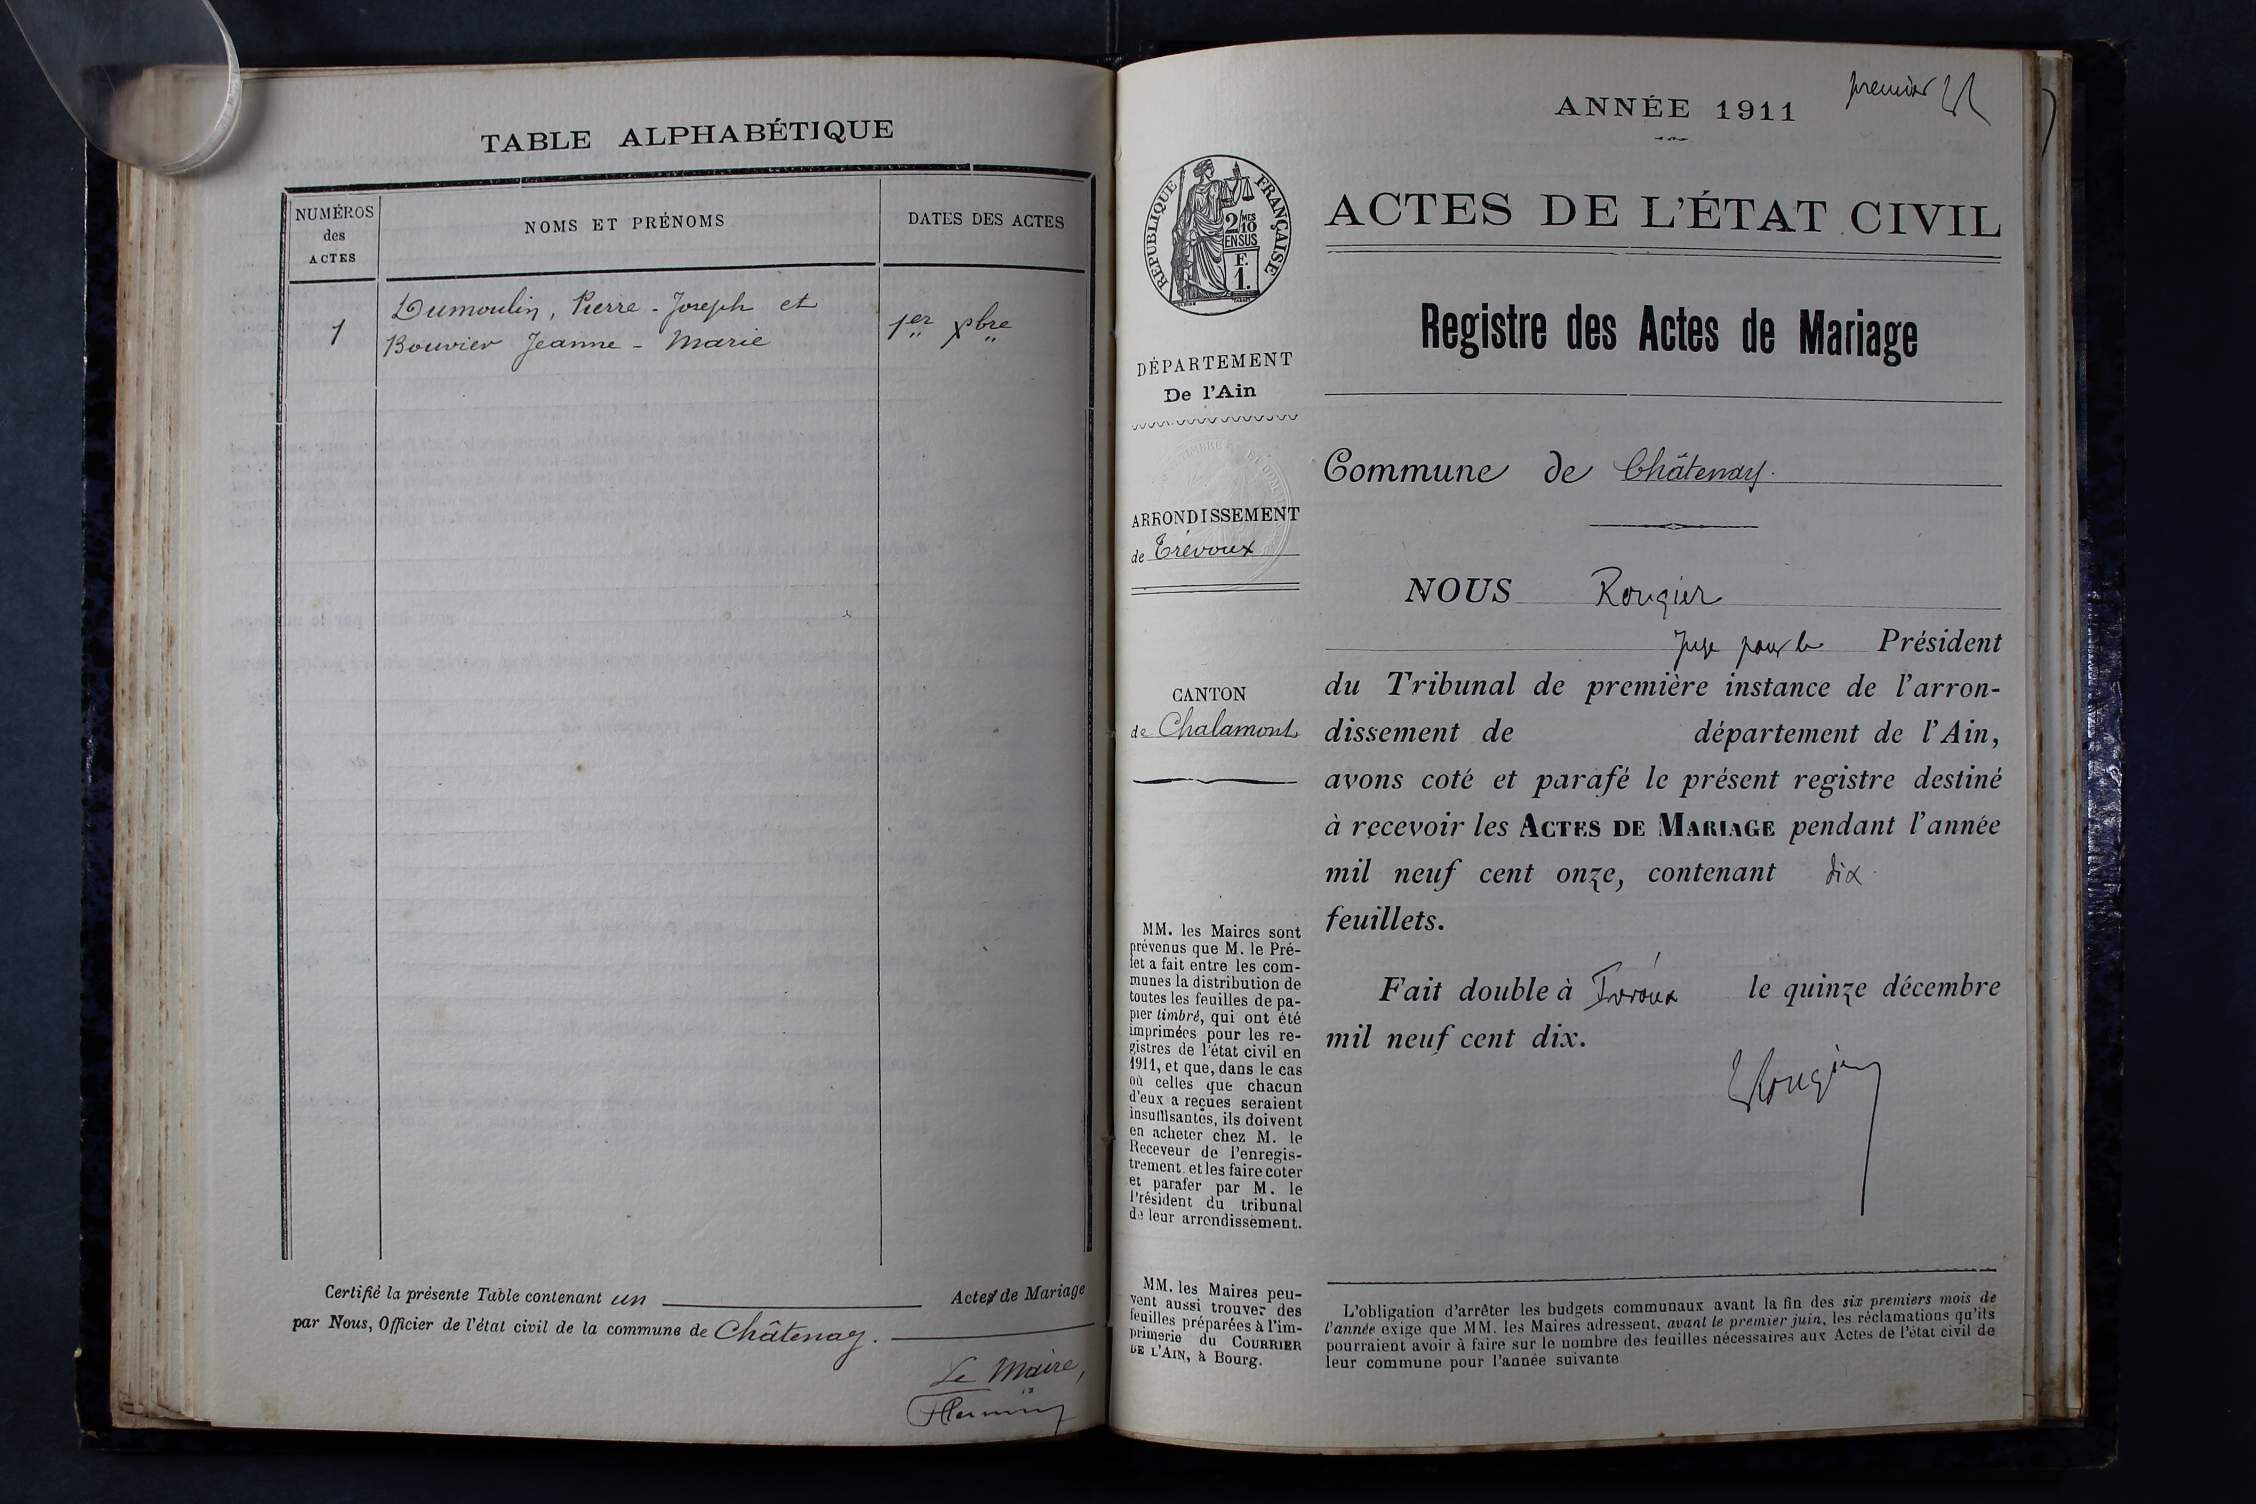 TABLE ALPHABÉTIQUE
NUMÉROS
des
ACTES
NOMS ET PRÉNOMS
DATES DES ACTES
1
Dumoulin, Pierre-Joseph et
Bouvier Jeanne-Marie
1er Xbre
Certifié la présente Table contenant un Actes de Mariage
par Nous, Officier de l'état civil de la commune de Châtenay.
Le Maire,
premier
ANNÉE 1911
RÉPUBLIQUE FRANÇAISE
2/10 MES
EN SUS
F.
1.
ACTES DE L'ÉTAT CIVIL
Registre des Actes de Mariage
DÉPARTEMENT
De l'Ain
ARRONDISSEMENT
de Trévoux
CANTON
de Chalamont
MM. les Maires sont
prévenus que M. le Pré-
fet a fait entre les com-
munes la distribution de
toutes les feuilles de pa-
pier timbré, qui ont été
imprimées pour les re-
gistres de l'état civil en
1911, et que, dans le cas
où celles que chacun
d'eux a reçues seraient
insuffisantes, ils doivent
en acheter chez M. le
Receveur de l'enregis-
trement. et les faire coter
et parafer par M. le
Président du tribunal
de leur arrondissement.
MM. les Maires peu-
vent aussi trouver des
feuilles préparées à l'im-
primerie du COURRIER
DE L'AIN, à Bourg.
Commune de Châtenay.
NOUS Rougier
Juge pour le Président
du Tribunal de première instance de l'arron-
dissement de département de l'Ain,
avons coté et parafé le présent registre destiné
à recevoir les ACTES DE MARIAGE pendant l'année
mil neuf cent onze, contenant dix
feuillets.
Fait double à Trévoux le quinze décembre
mil neuf cent dix.
Rougier
L'obligation d'arrêter les budgets communaux avant la fin des six premiers mois de
l'année exige que MM. les Maires adressent, avant le premier juin, les réclamations qu'ils
pourraient avoir à faire sur le nombre des feuilles nécessaires aux Actes de l'état civil de
leur commune pour l'année suivante